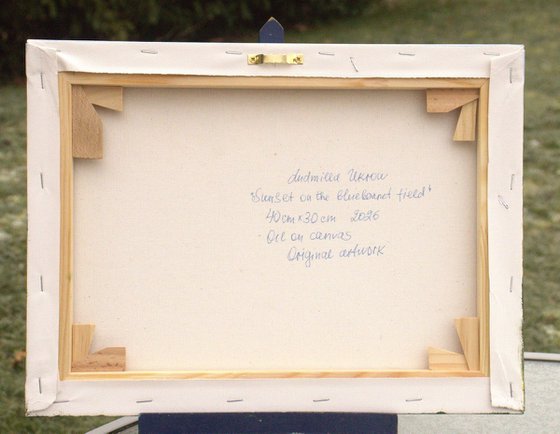 Ludmilla Ukrow
"Sunset on the bluebonnet field"
40cm×30cm 2026
Oil on canvas
Original artwork